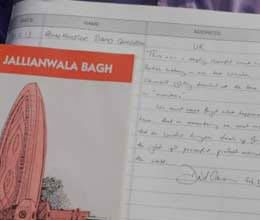 DATE NAME ADDRESS
Prime Minister David Cameron
UK
JALLIANWALA BAGH
This was a deeply shameful event in
British history one that Winston
Churchill rightly described at the time as
"monstrous".
We must never forget what happened
here. And in remembering we must ensure
that the United Kingdom stands up for
the right of peaceful protest around
the world.